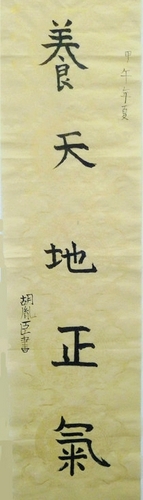 養天地正氣
甲午年夏
胡胤臣書